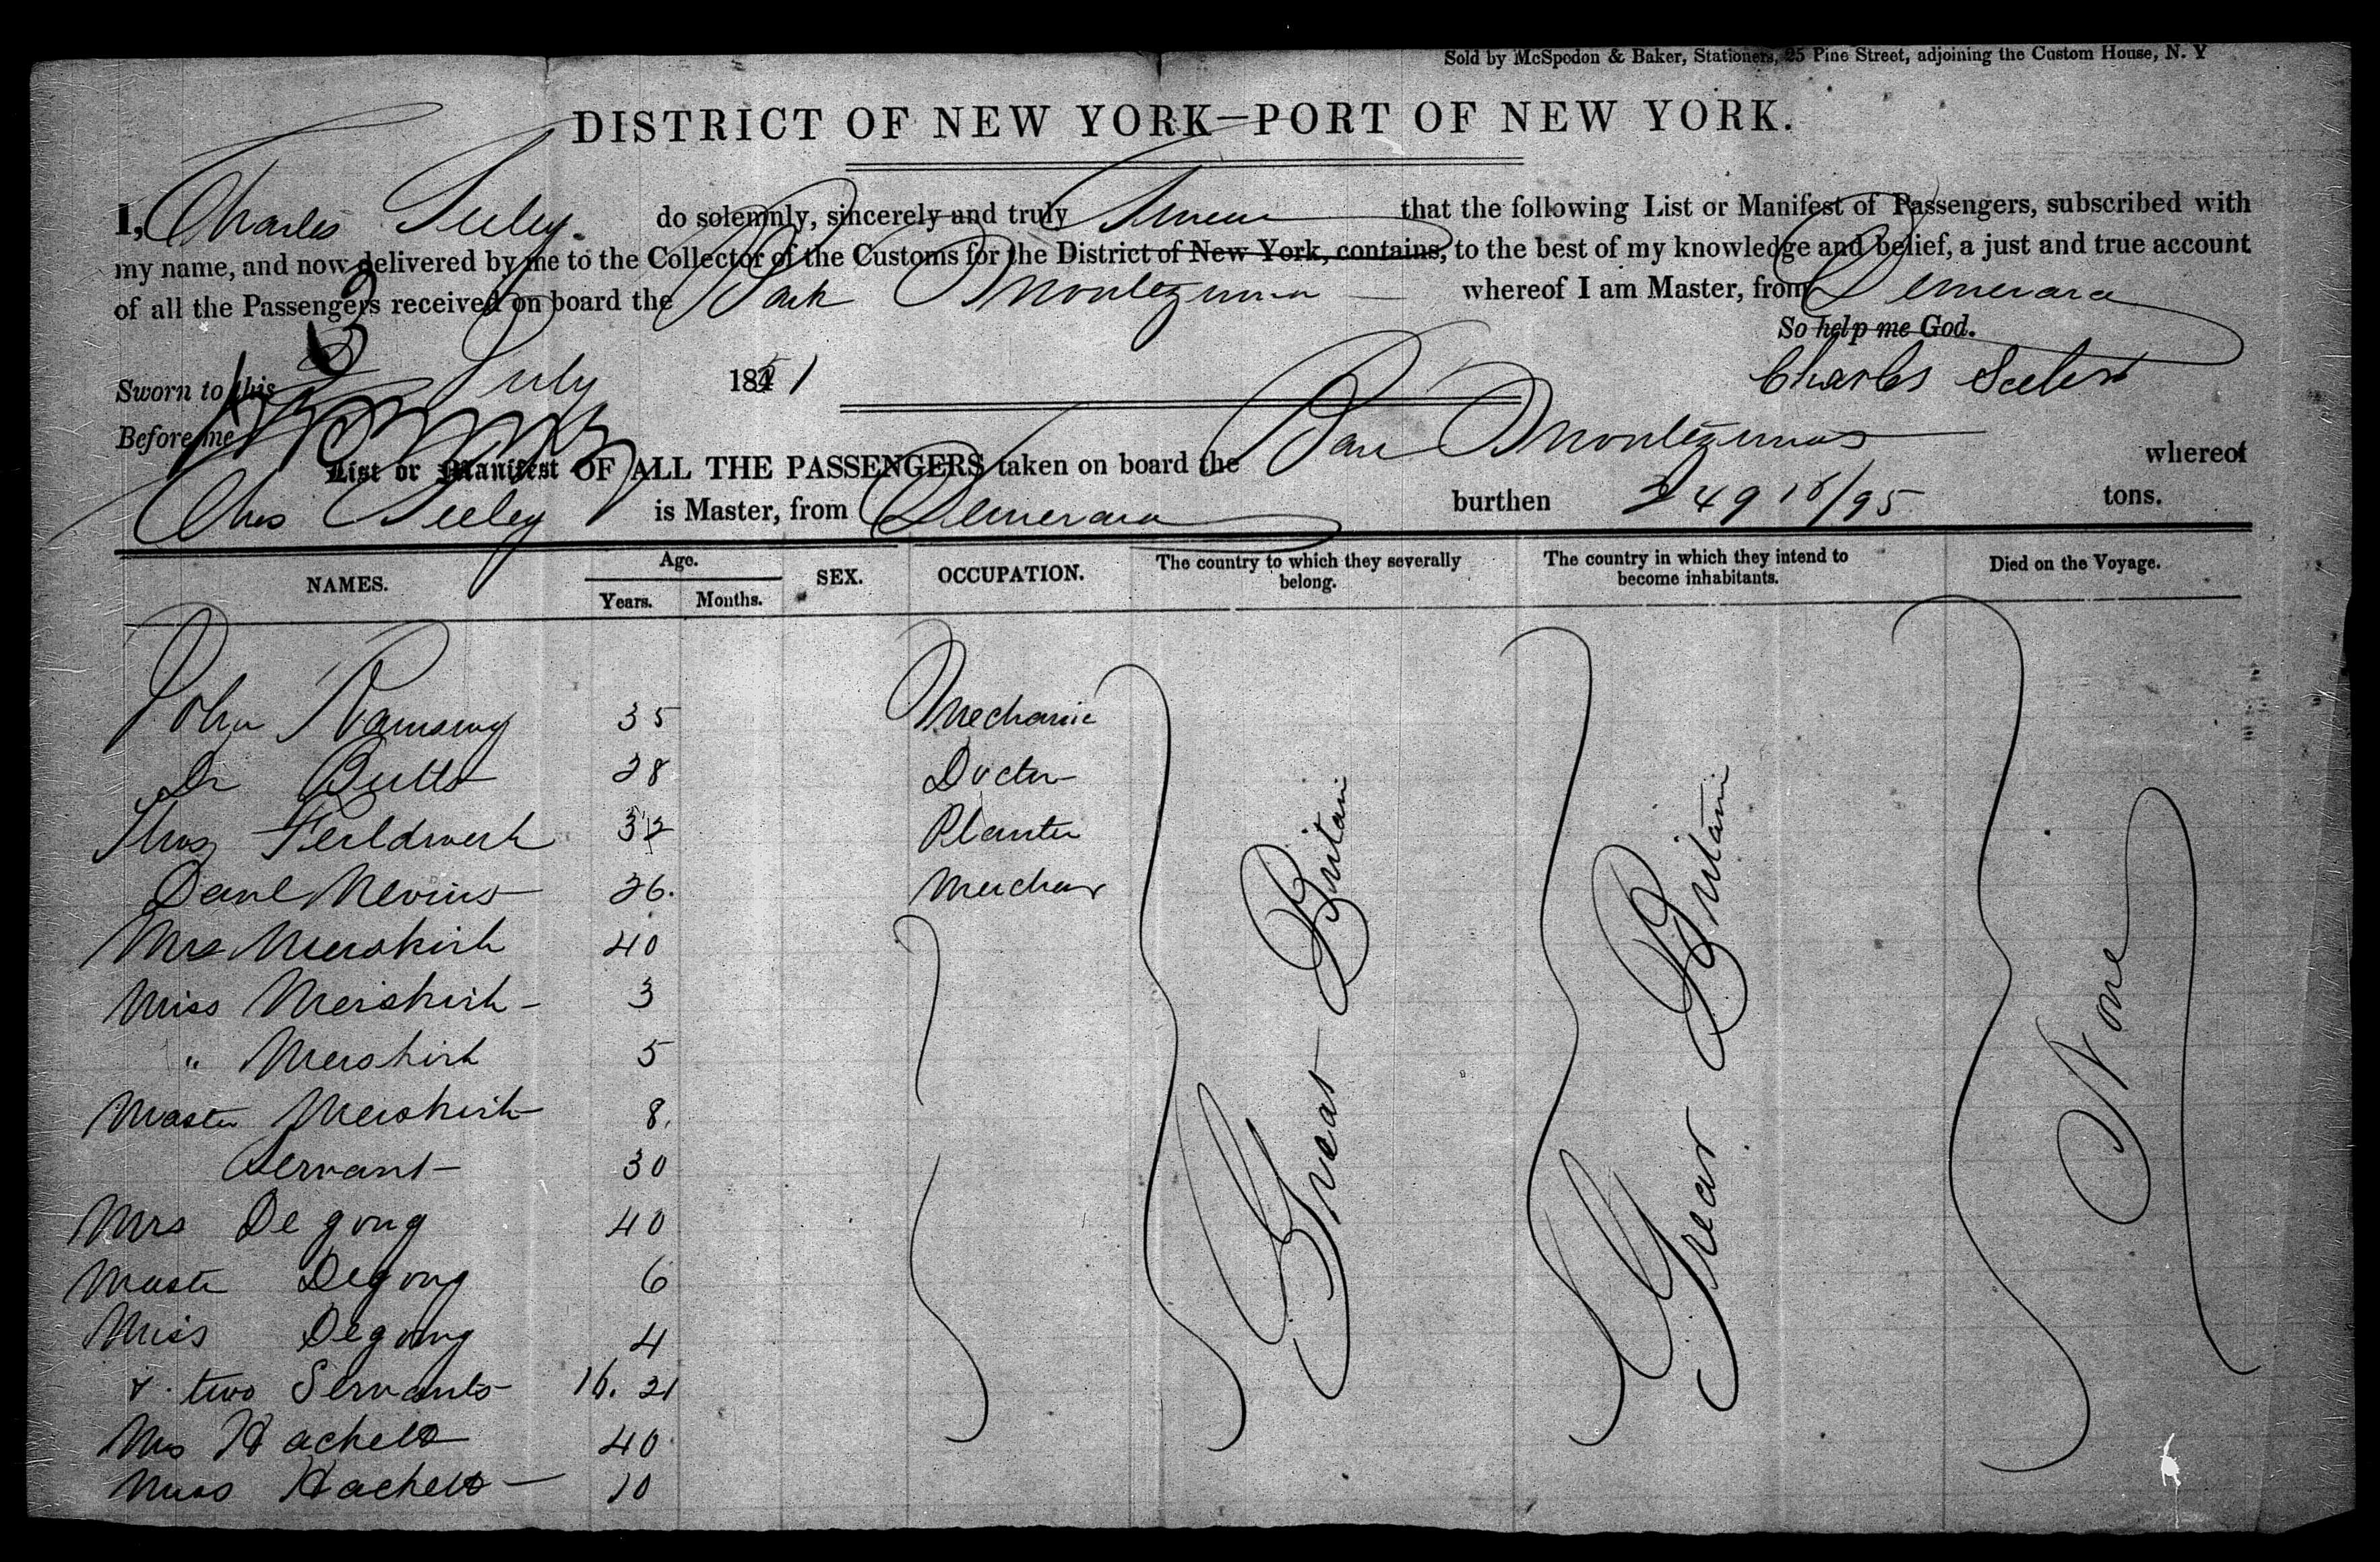 Sold by McSpedon & Baker, Stationers, 25 Pine Street, adjoining the Custom House, N. Y
DISTRICT OF NEW YORK—PORT OF NEW YORK.
I, Charles Seeley do solemnly, sincerely and truly Swear that the following List or Manifest of Passengers, subscribed with
my name, and now delivered by me to the Collector of the Customs for the District of New York, contains, to the best of my knowledge and belief, a just and true account
of all the Passengers received on board the Bark Montezuma whereof I am Master, from Demerara
So help me God.
Sworn to this July 1851 Charles Seeley
Before me
List or Manifest OF ALL THE PASSENGERS taken on board the Bark Montezuma whereof
Chas Seeley is Master, from Demerara burthen 249 18/95 tons.
NAMES. Age. Years. Months. SEX. OCCUPATION. The country to which they severally belong. The country in which they intend to become inhabitants. Died on the Voyage.
John Ramsay 35 Mechanic
Dr Butts 28 Doctor
Thos 32 Planter
Danl Nevins 26. Merchant
Mrs Meiskirk 40
Miss Meiskirk 3
" Meiskirk 5
Master Meiskirk 8.
Servant 30
Mrs Degong 40
Master Degong 6
Miss Degong 4
& two Servants 16. 21
Mrs Hachett 40
Miss Hachett 10
Great Britain
Great Britain
None